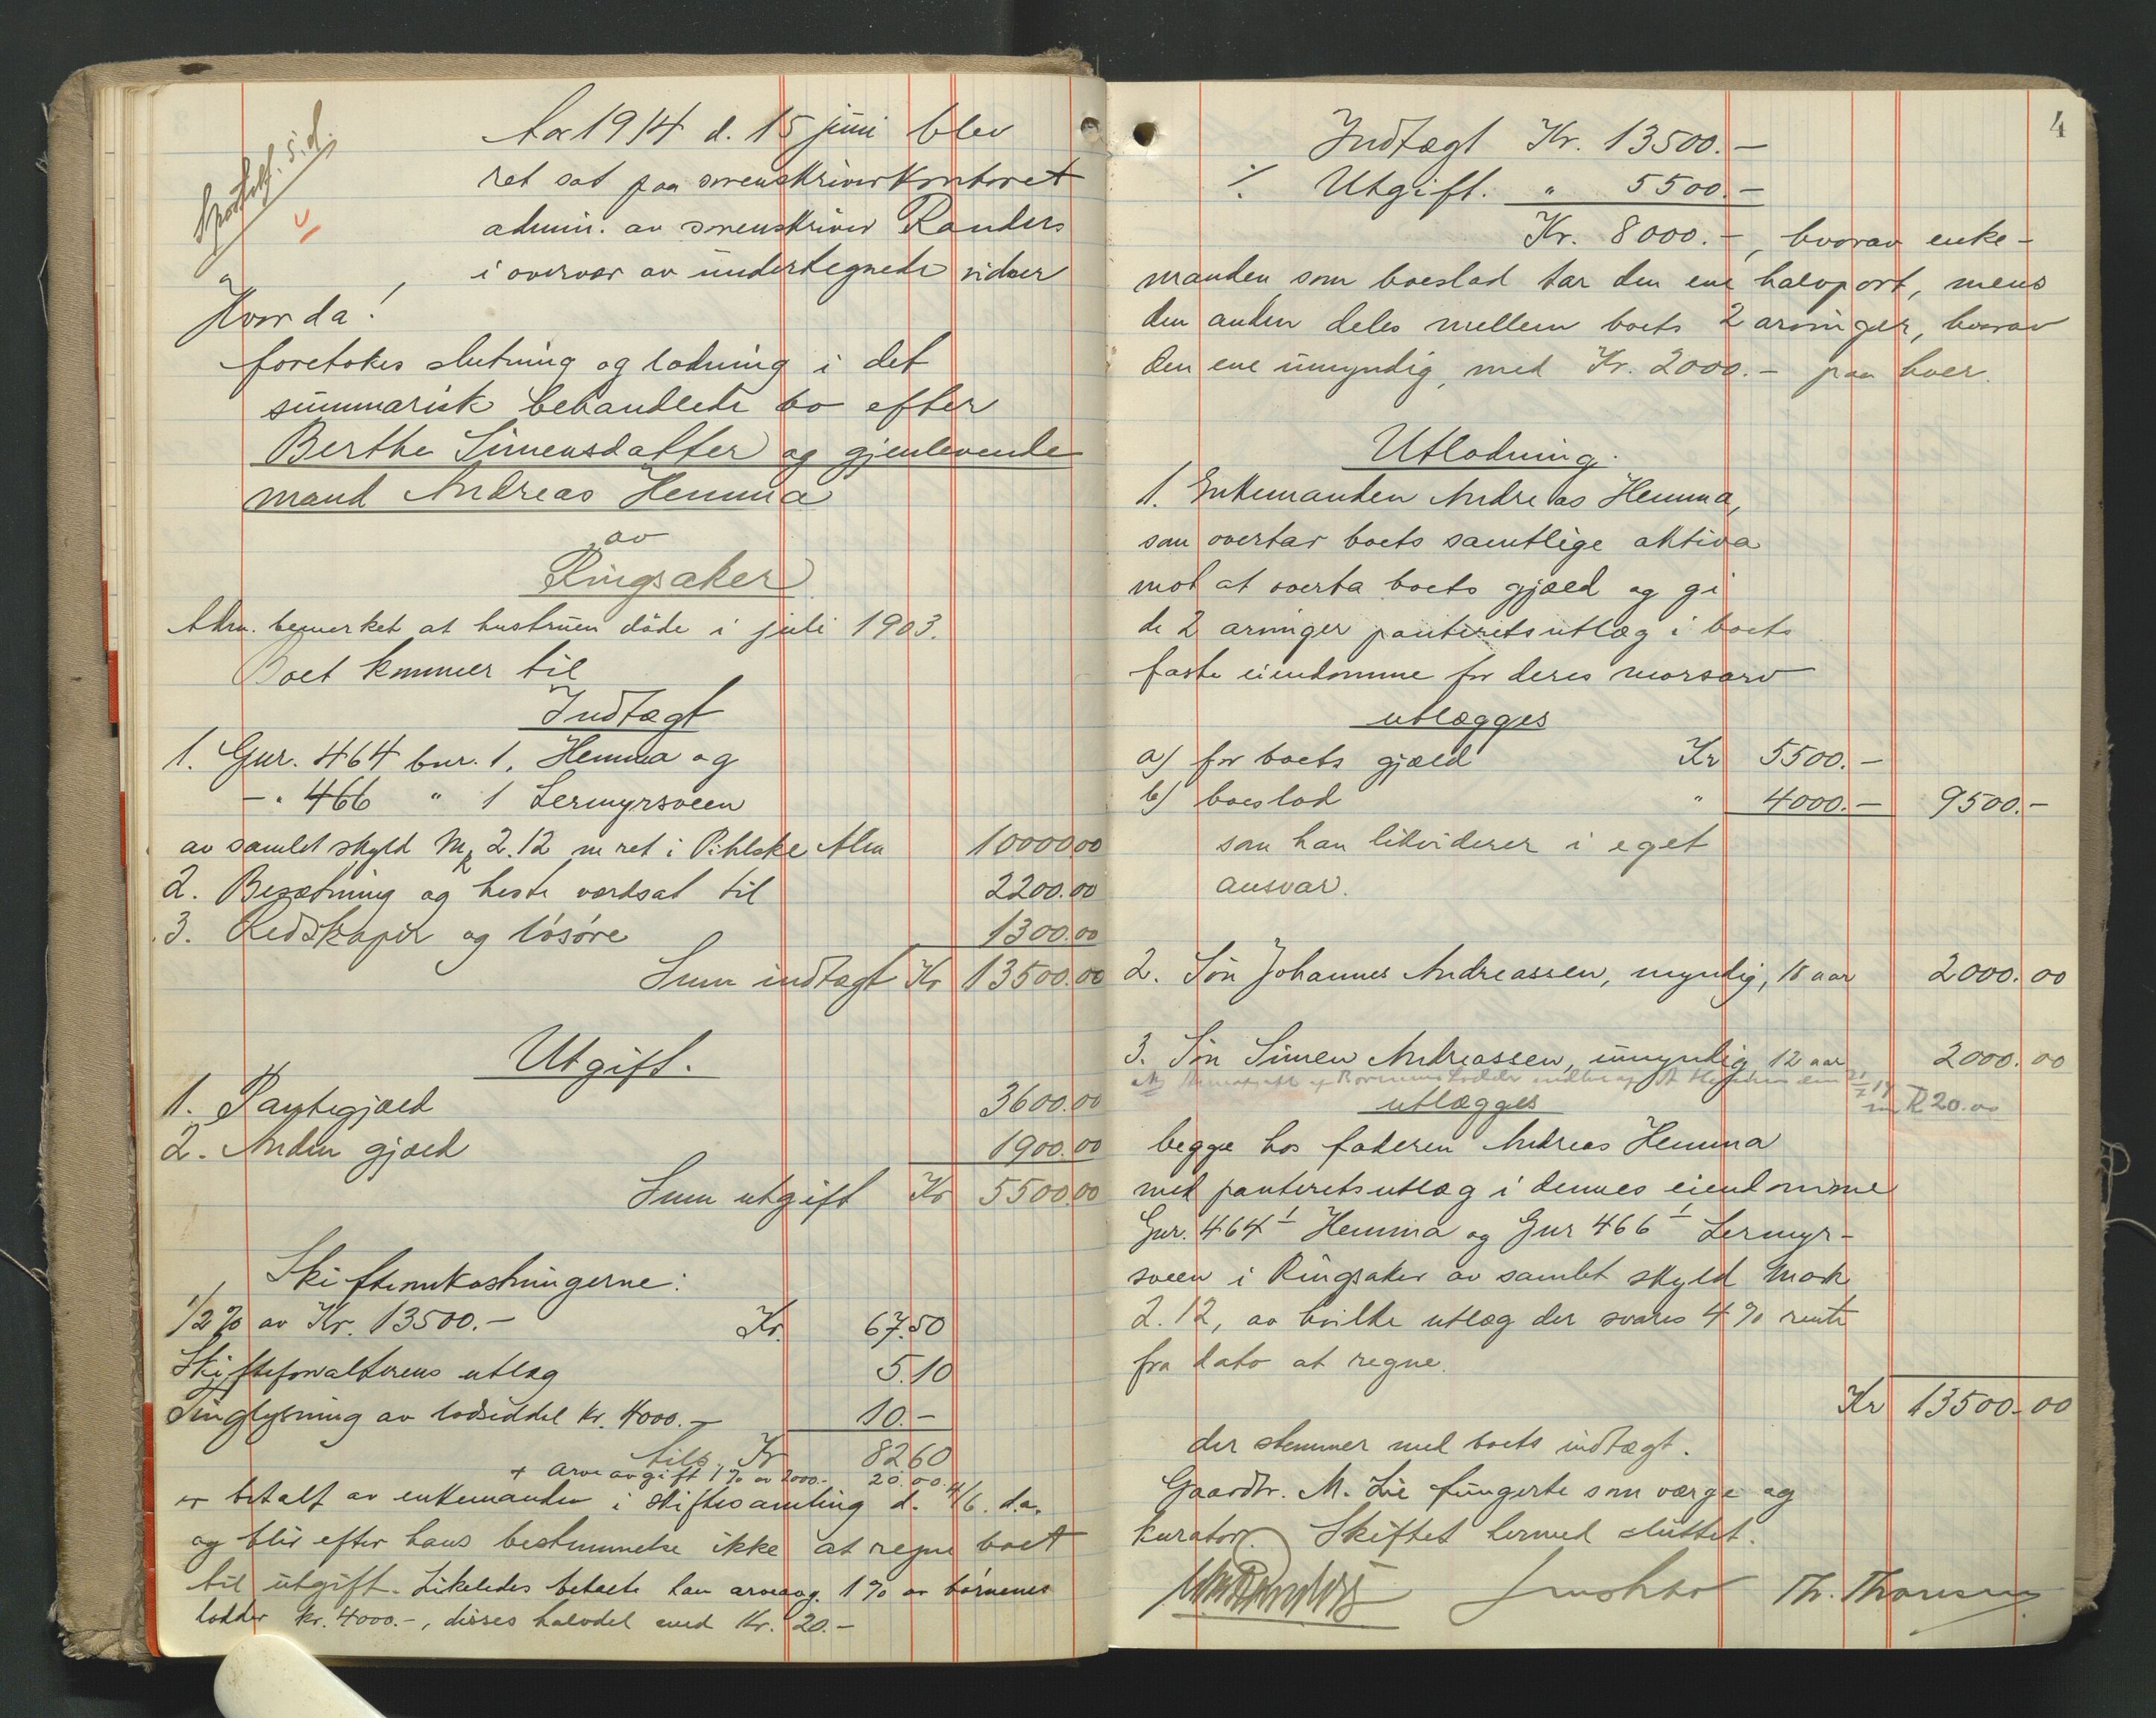 Aar 1914 d. 15 juni blev
ret sat paa sorenskriverkontoret
admin. av sorenskriver Randers
i overvær av undertegnede vidner
Hvorda!
foretokes slutning og lodning i det
summarisk behandlede bo efter
Berthe Simensdatter og gjenlevende
mand Andreas Hemma
av
Ringsaker
Adm. bemerket at hustruen döde i juli 1903.
Boet kommer til
Indtægt
1. Gnr. 464 bnr. 1, Hemma og
- " 466 " 1 Lermyrsveen
av samlet skyld M 2.12 m ret i Pihlske Alm 10000.00
2. Besætning og heste værdsat til 2200.00
3. Redskaper og lösöre 1300.00
Sum indtægt Kr 13500.00
Utgift.
1. Pantegjæld 3600.00
2. Anden gjæld 1900.00
Sum utgift Kr 5500.00
Skifteomkostningerne:
1/2 % av Kr. 13500.- Kr. 67.50
Skifteforvalterens utlæg 5.10
Tinglysning av lodseddel Kr. 4000.- 10.-
tils. Kr 82.60
+ arveavgift 1 % av 2000.- 20.00
er betalt av enkemanden i skiftesamling d. 4/6. d.a.
og blir efter hans bestemmelse ikke at regne boet
til utgift. Likeledes betalte han arveavg. 1 % av börnenes
lodder kr. 4000.-, disses halvdel med Kr. 20.-
4
Indtægt Kr. 13500.-
./. Utgift. " 5500.-
Kr. 8000.-, hvorav enke-
manden som boeslod tar den ene halvport, mens
den anden deles mellem boets 2 arvinger, hvorav
den ene umyndig, med Kr. 2000.- paa hver.
Utlodning.
1. Enkemanden Andreas Hemma,
som overtar boets samtlige aktiva
mot at overta boets gjæld og gi
de 2 arvinger panteretsutlæg i boets
faste eiendomme for deres morsarv
utlægges
a) for boets gjæld Kr 5500.-
b) boeslod " 4000.- 9500.-
som han likviderer i eget
ansvar.
2. Sön Johannes Andreassen, myndig, 18 aar 2000.00
3. Sön Simen Andreassen, umyndig 12 aar 2000.00
Kr 20.00
utlægges
begge hos faderen Andreas Hemma
med panteretsutlæg i dennes eiendomme
Gnr. 464 1 Hemma og Gnr 466 1 Lermyr-
sveen i Ringsaker av samlet skyld Mark
2.12, av hvilke utlæg der svares 4 % rente
fra dato at regne.
Kr 13500.00
der stemmer med boets indtægt.
Gaardbr. M. Lie fungerte som værge og
kurator. Skiftet hermed sluttet.
Th. Thoresen